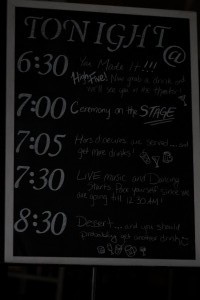 TONIGHT @
6:30 You Made it!!!
High Five! Now grab a drink and
we'll see you in the theatre!
7:00 Ceremony on the STAGE
7:05 Hors d'oeuvres are served....and
get more drinks!
7:30 LIVE music and Dancing
Starts. Pace yourself since we
are going till 12:30 am!
8:30 Dessert....and you should
probably get another drink